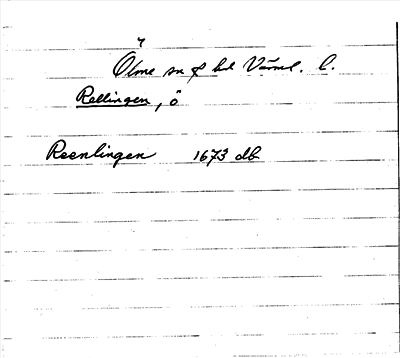 Ölme sn o hd Värml. l.
Rellingen, ö
Reenlingen 1673 db